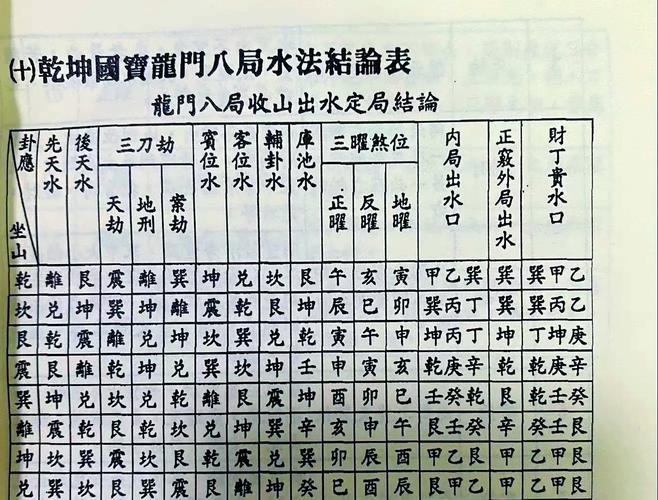 (十)乾坤國寶龍門八局水法結論表
龍門八局收山出水定局結論
卦應 坐山 先天水 後天水 三刀劫 天劫 地刑 案劫 賓位水 客位水 輔卦水 庫池水 三曜煞位 正曜 反曜 地曜 内局出水口 正竅外局出水 財丁貴水口
乾 離 艮 震 離 巽 坤 兌 坎 艮 午 亥 寅 甲乙巽 巽 巽甲乙
坎 兌 坤 巽 坤 離 震 乾 艮 坤 辰 巳 卯 巽丙丁 巽 巽丙乙
艮 乾 震 離 兌 坤 坎 巽 兌 乾 寅 午 申 坤丙丁 坤 丁坤庚
震 艮 離 乾 坤 兌 巽 坎 坤 壬 申 寅 亥 乾庚辛 乾 乾庚辛
巽 坤 兌 坎 兌 乾 離 艮 震 坤 酉 卯 巳 壬癸乾 艮 乾壬癸
離 震 乾 艮 乾 坎 兌 坤 乾 辛 亥 申 午 艮壬癸 辛 癸壬艮
坤 坎 巽 震 坎 艮 乾 兌 巽 卯 辰 酉 甲乙艮 乙 甲甲艮
兌 巽 坎 艮 巽 震 艮 離 離 癸 巳 酉 辰 甲乙艮 乙 甲甲艮